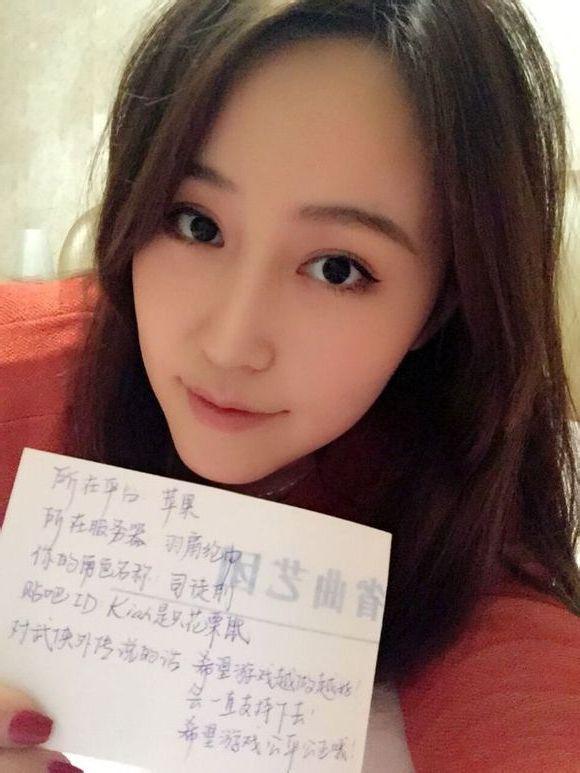 所在平台 苹果
所在服务器 羽扇纶巾
你的角色名称: 司徒
贴吧ID Kiah是只花栗鼠
对武侠外传说的话 希望游戏越做越好!
会一直支持下去!
希望游戏公平公正哦!
省曲艺团